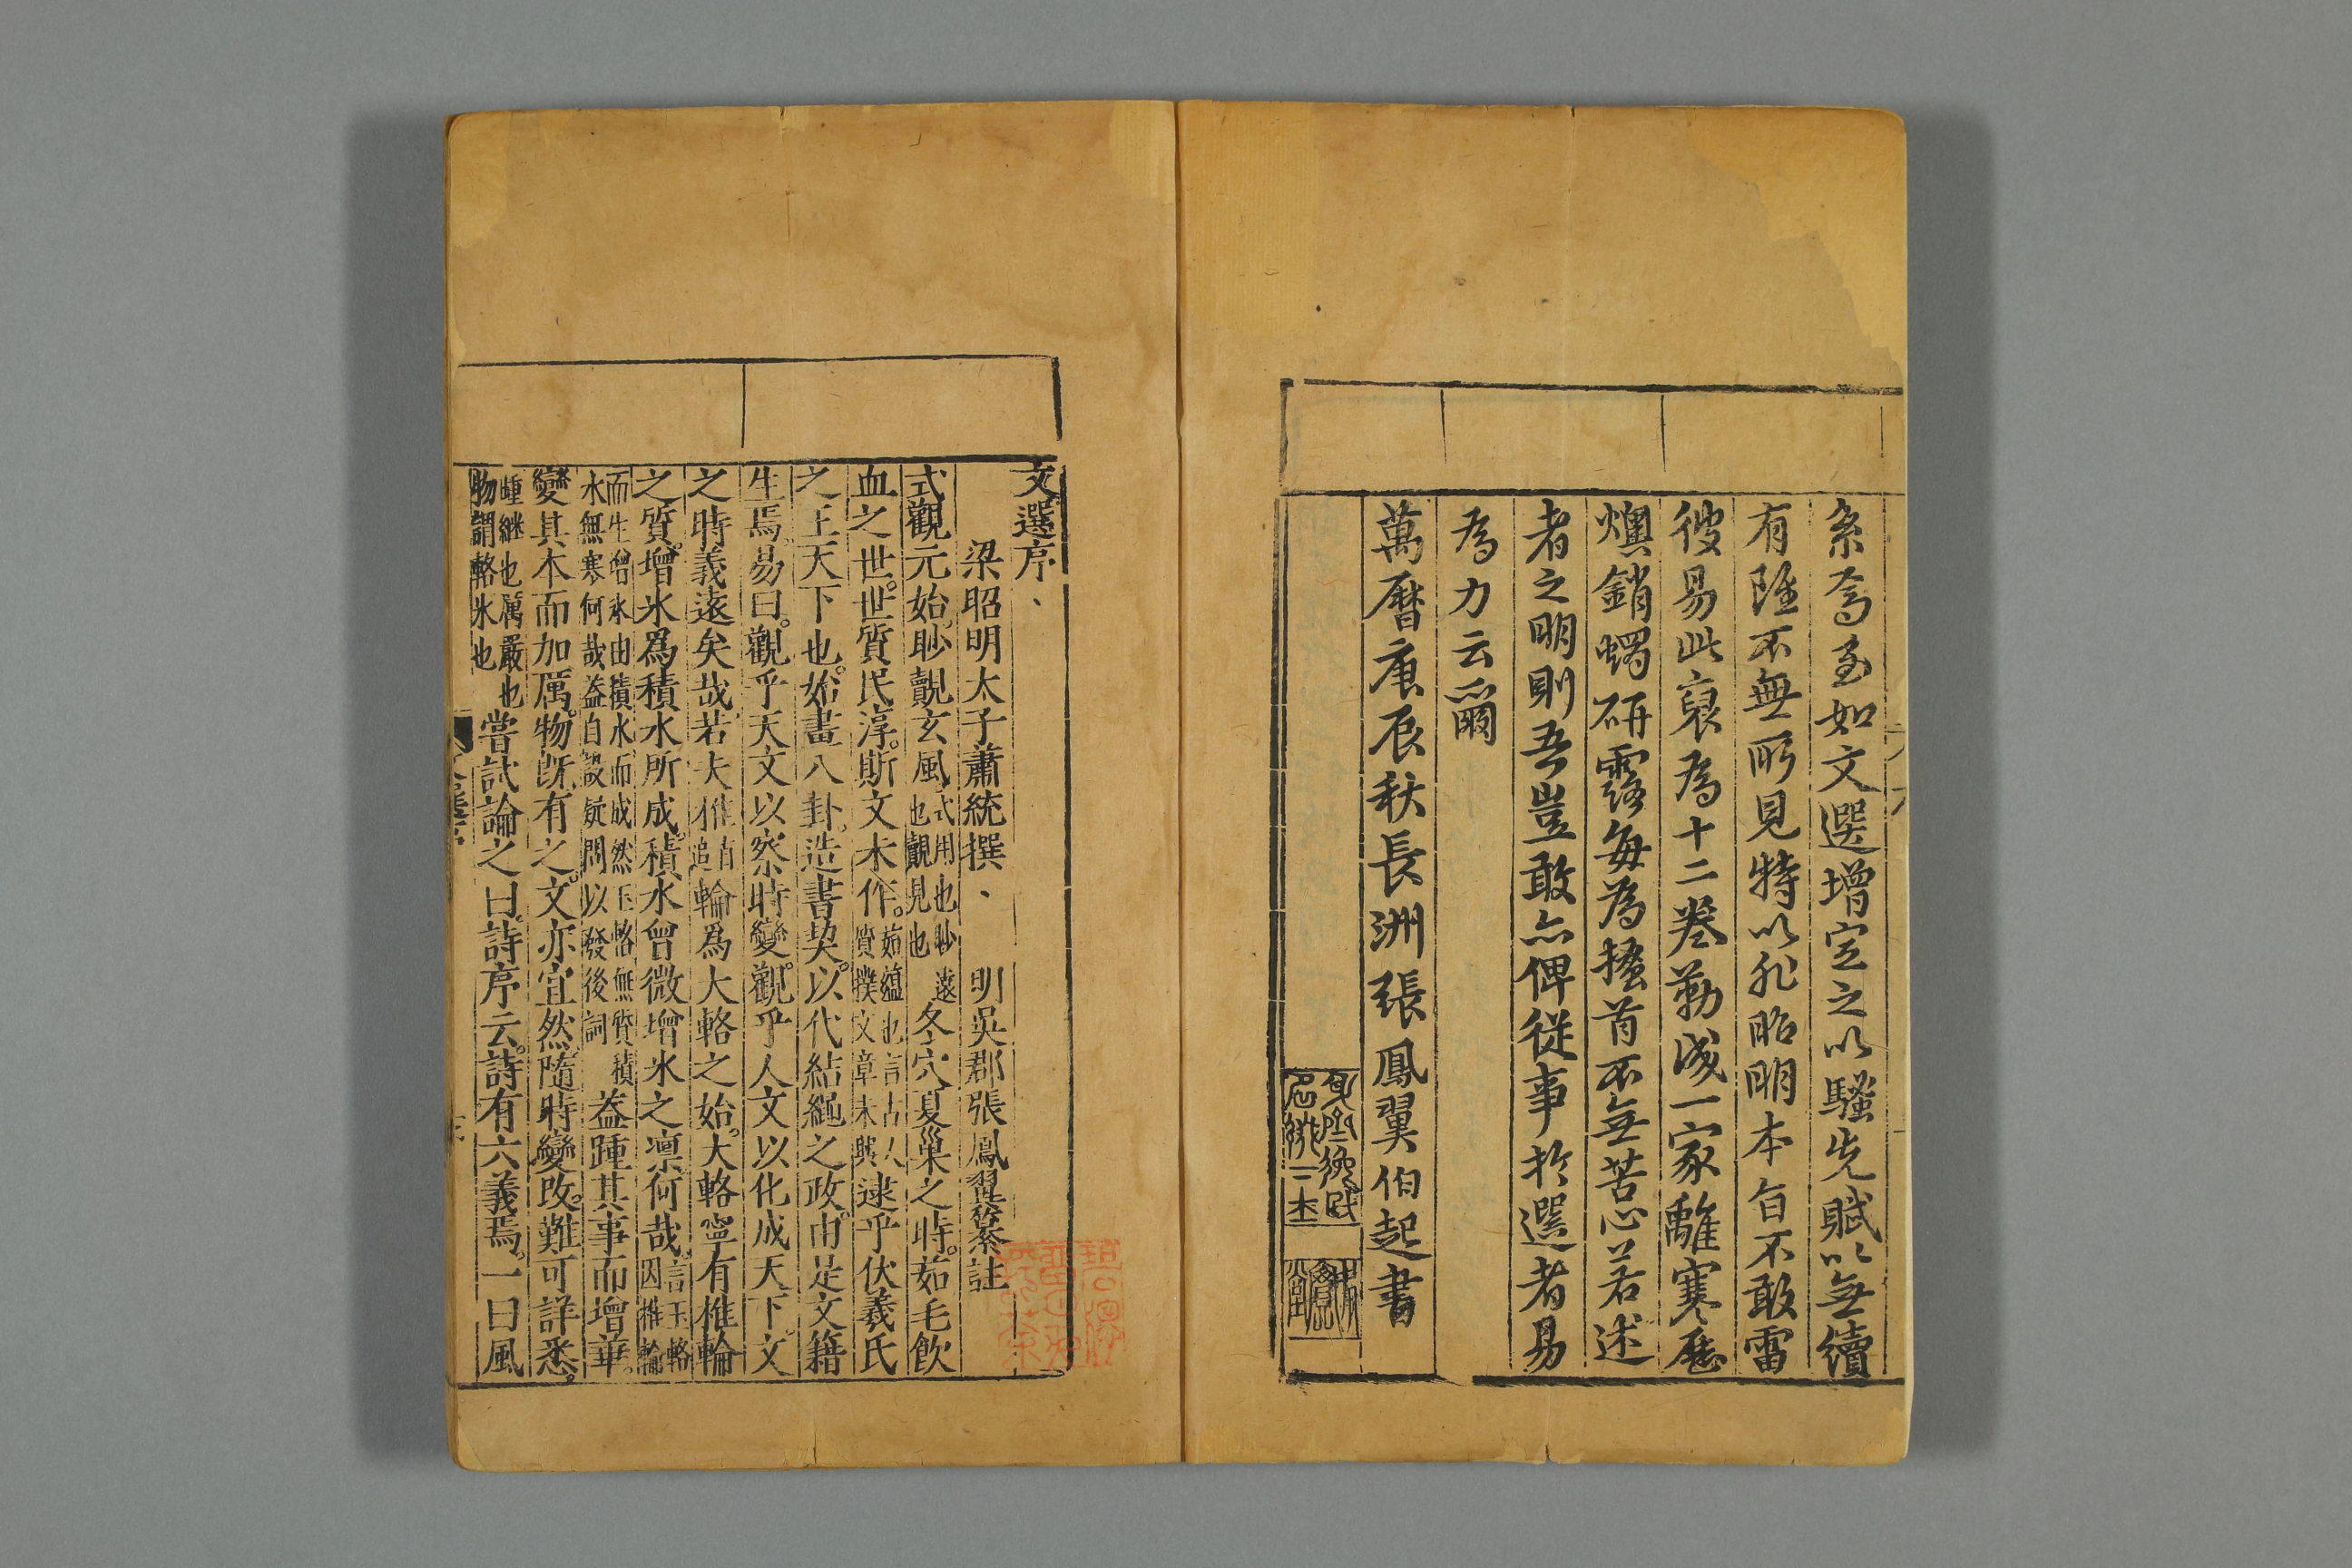 系焉至如文選增定之以騷先賦以無續
有陸不無所見特以非昭明本旨不敢雷
彼易此裒為十二卷勒成一家離寒歷
燠銷蠋研露每為搔首不無苦心若述
者之明則吾豈敢亦俾從事於選者易
為力云爾
萬曆庚辰秋長洲張鳳翼伯起書
文選序、
梁昭明太子蕭統撰、明吳郡張鳳翼纂註
式觀元始。眇覿玄風式用也眇遠也覿見也冬穴夏巢之時。茹毛飲
血之世。世質民淳。斯文未作。茹蘊也言古人質撲文章未興逮乎伏羲氏
之王天下也。始畫八卦。造書契。以代結繩之政。由是文籍
生焉。易曰。觀乎天文以察時變。觀乎人文以化成天下。文
之時義遠矣哉若夫椎直追輪為大輅之始。大輅寧有椎輪
之質。增氷爲積水所成。積水曾微增氷之凛何哉。言玉輅因椎輪
而生增氷由積水而成然玉輅無質積水無寒何哉葢自設疑問以發後詞葢踵其事而增華。
變其本而加厲。物旣有之。文亦宜然。隨時變改。難可詳悉。
踵継也厲嚴也物謂輅氷也嘗試論之曰。詩序云。詩有六義焉。一曰風